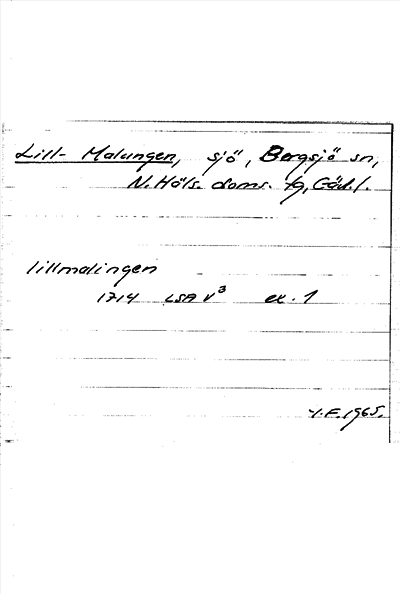 Lill- Malungen, sjö, Bergsjö sn,
N. Häls. doms. tg, Gävl.
lillmalingen
1714 LSA V3 ex. 1
Y.F. 1965.